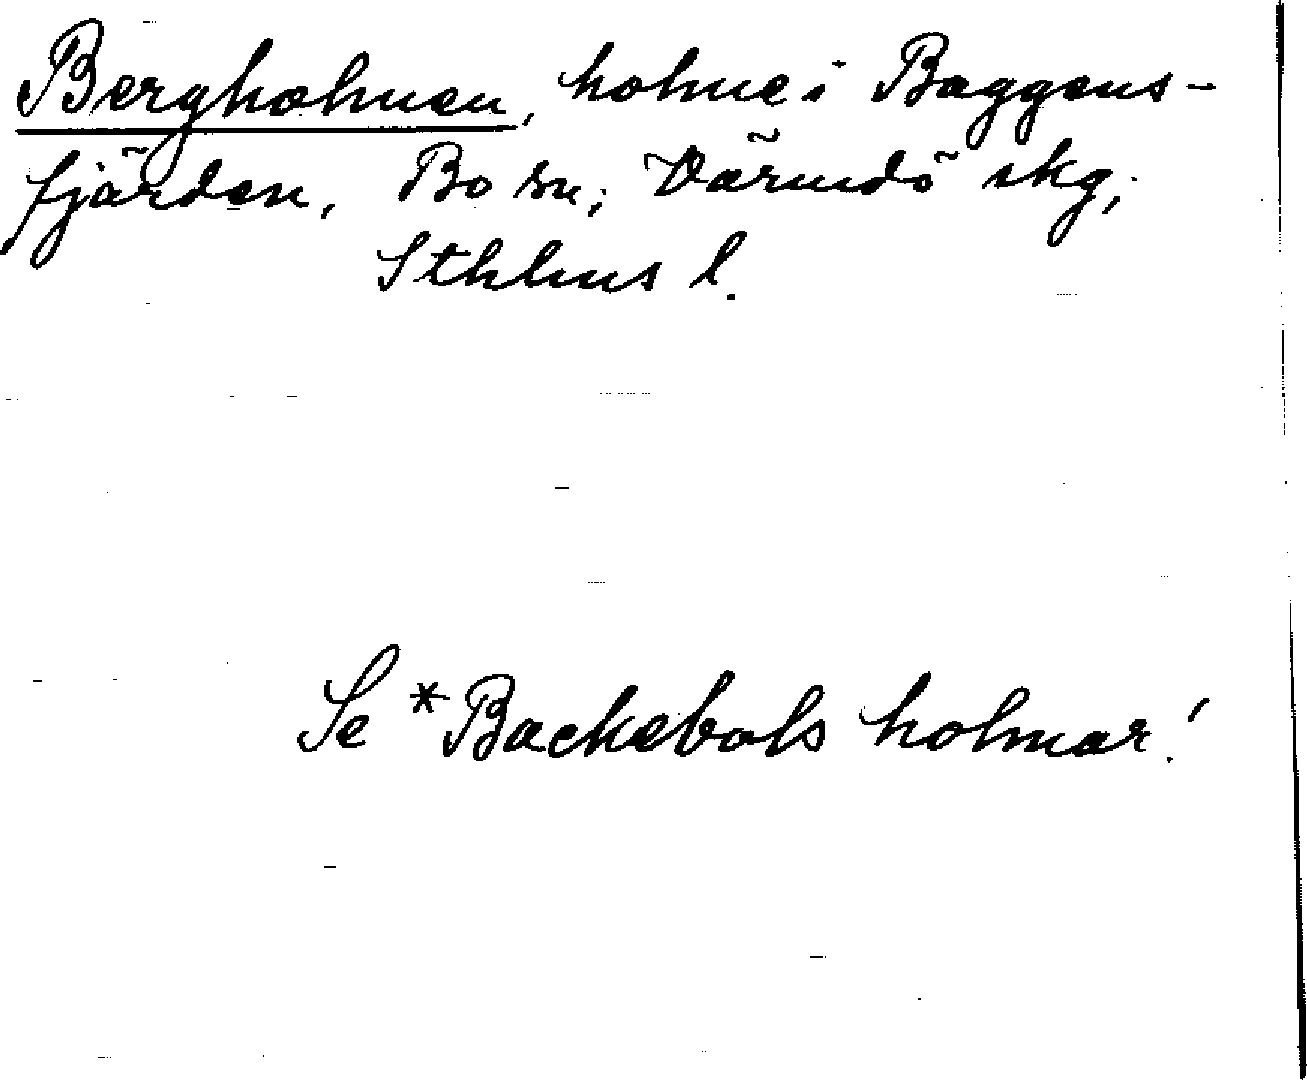 Bergholmen, holme i Baggens-
fjärden, Bo sn, Värmdö skg,
Sthlms l.
Se *Backebols holmar!